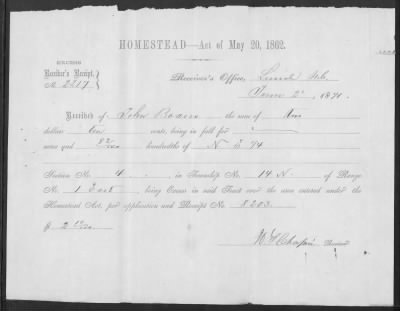 HOMESTEAD—Act of May 20, 1862.
EXCESS
Receiver's Receipt,
No. 2217
Receiver's Office,
June 2 1874.
Received of John the sum of two
dollars ten cents, being in full for
acres and 82/100 hundredths of N E ¼
Section No. 4 in Township No. 14 N of Range
No. 1 East being Excess in said Tract over the area entered under the
Homestead Act, per application and Receipt No. 8203.
$ 2 10/100
Receiver